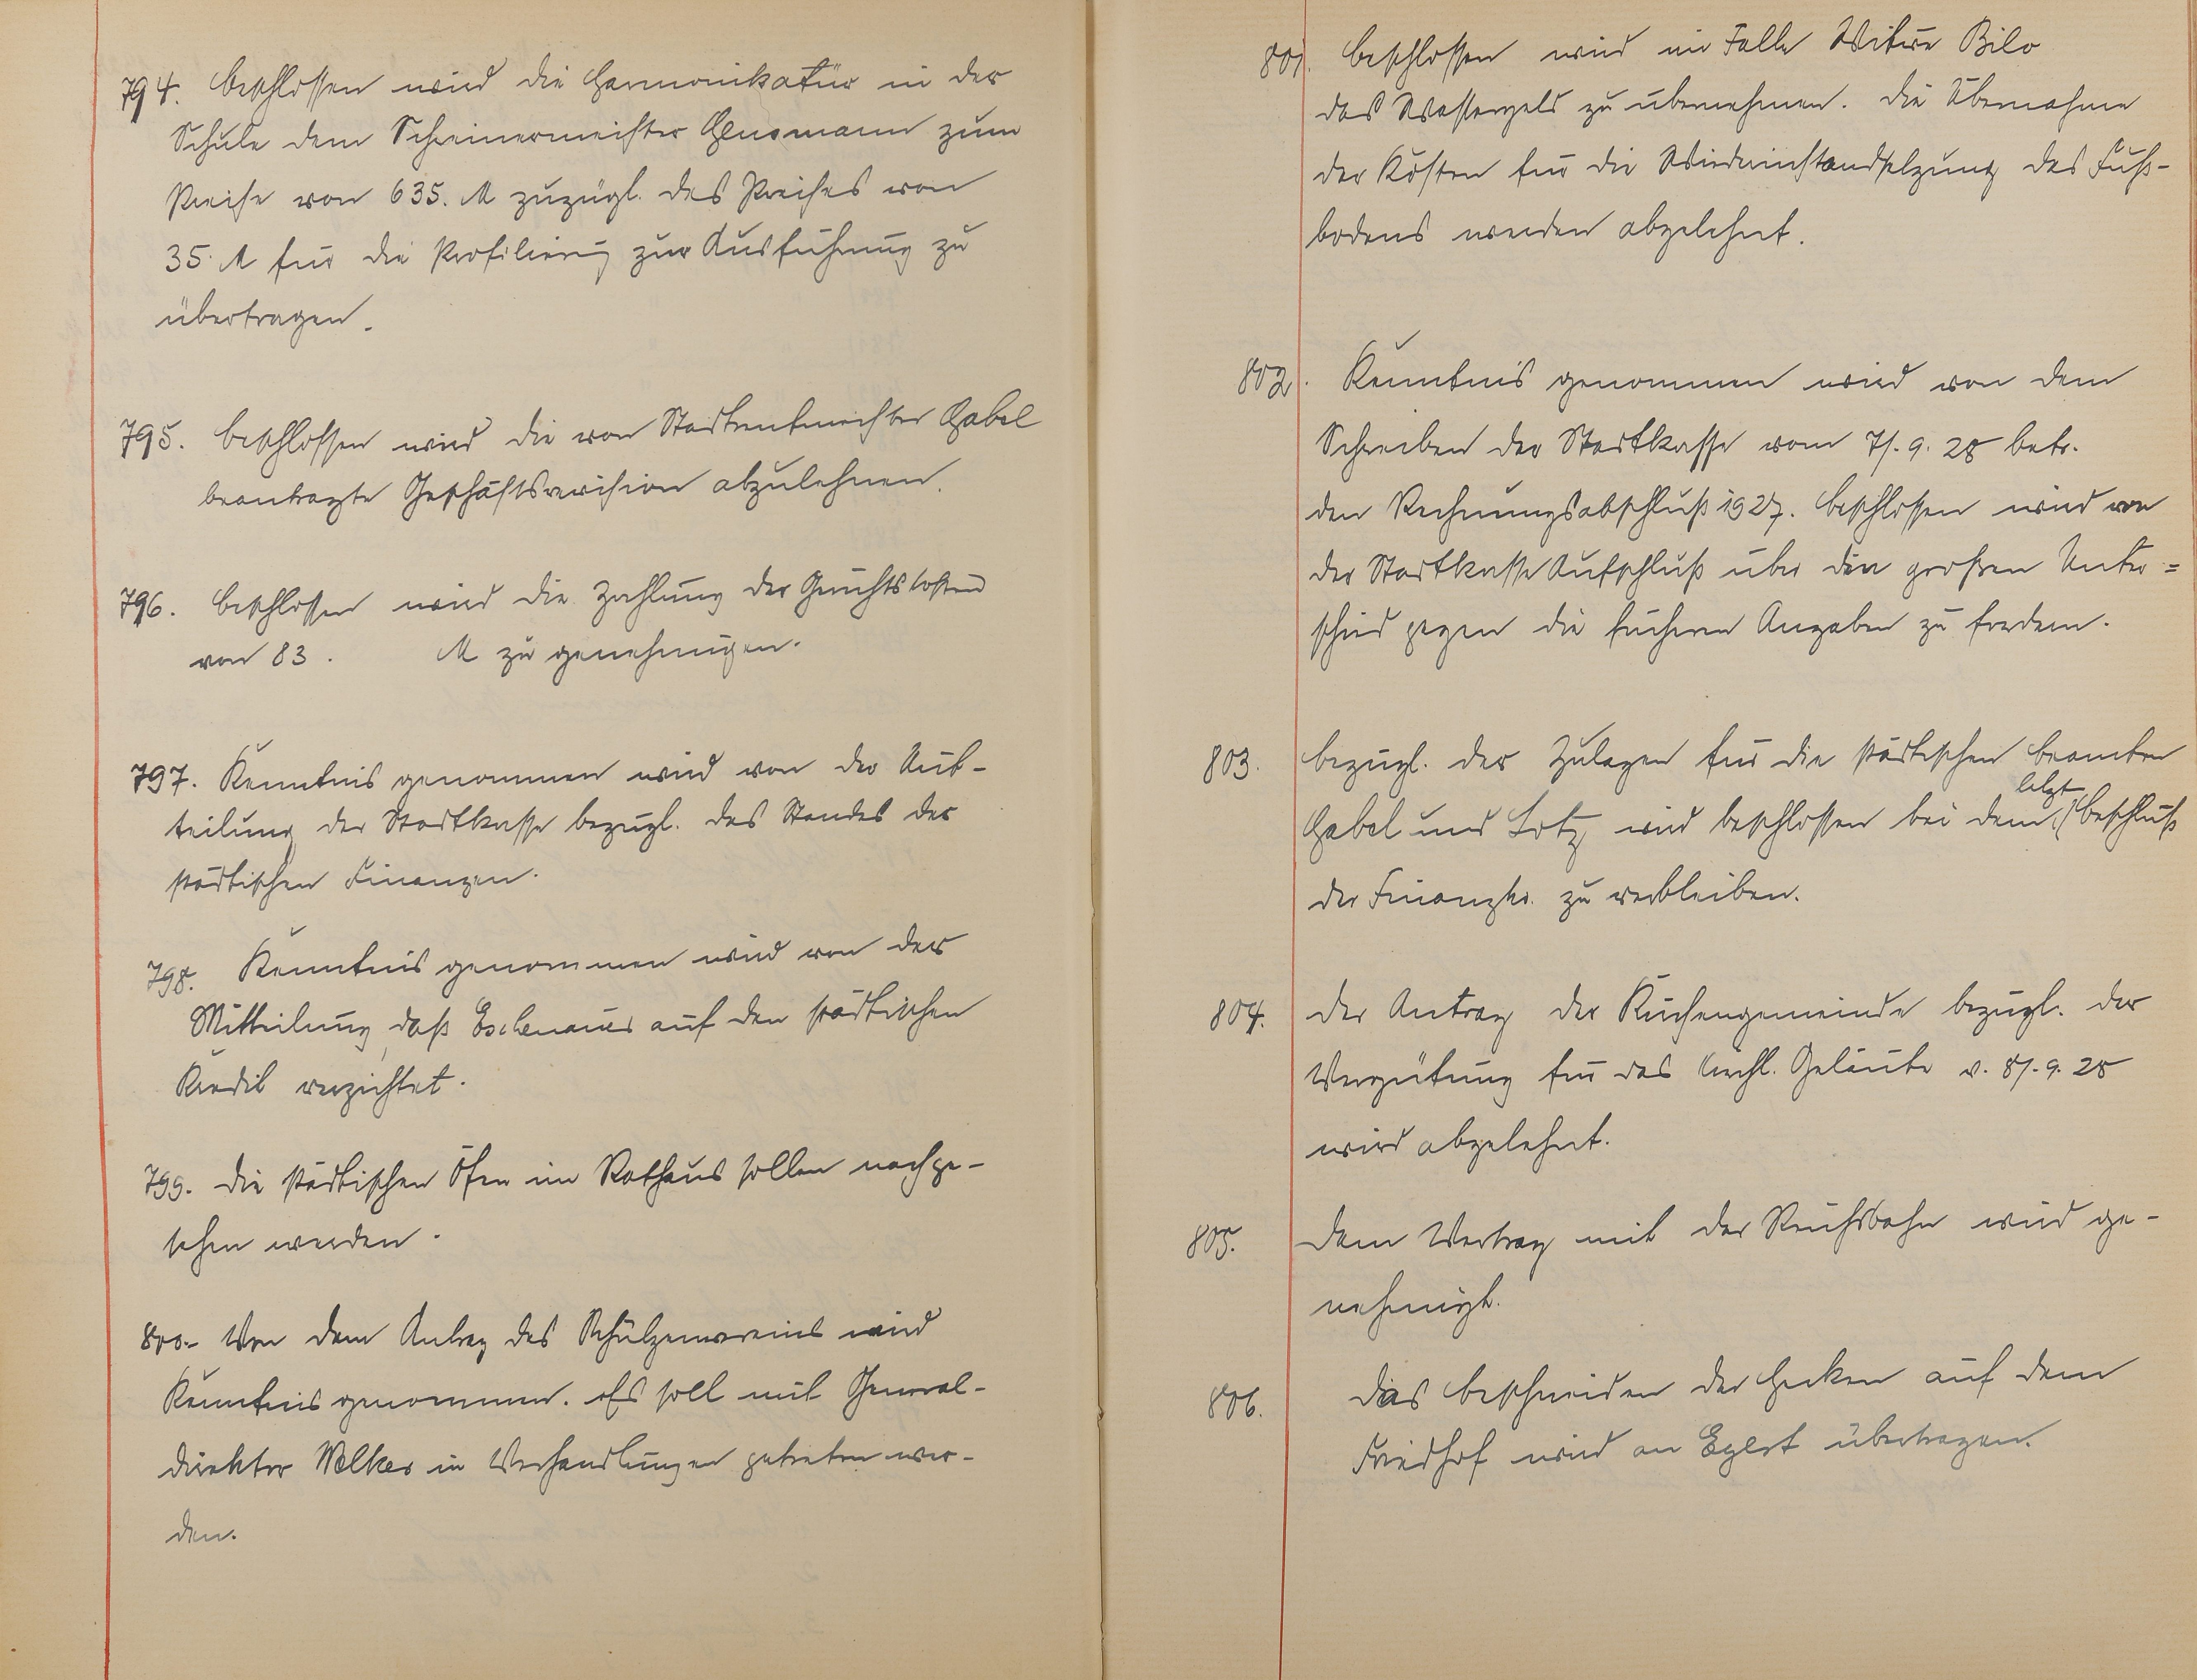 794. Beschlossen wird die Harmonikatür in der
Schule dem Schreinermeister Hensmann zum
Preise von 635. M zuzügl. des Preises von
35. M für die Profilierung zur Ausführung zu
übertragen.
795. Beschlossen wird die von Stadtrentmeister Gabel
beantragte Geschäftsrevision abzulehnen.
796. Beschlossen wird die Zahlung der Gerichtskosten
von 83. M zu genehmigen.
797. Kenntnis genommen wird von der Mit-
teilung der Stadtkasse bezügl. des Standes der
städtischen Finanzen.
798. Kenntnis genommen wird von der
Mitteilung, daß Eschenauer auf den städtischen
Kredit verzichtet.
799. Die städtischen Öfen im Rathaus sollen nachge-
sehen werden.
800.- Von dem Antrag des Schützenvereins wird
Kenntnis genommen. Es soll mit General-
direktor Welker in Verhandlungen getreten wer-
den.
801. Beschlossen wird im Falle Witwe Bilo
das Wassergeld zu übernehmen. Die Übernahme
der Kosten für die Wiederinstandsetzung des Fuß-
bodens werden abgelehnt.
802. Kenntnis genommen wird von dem
Schreiben der Stadtkasse vom 7/. 9. 28 betr.
den Rechnungsabschluß 1927. Beschlossen wird von
der Stadtkasse Aufschluß über den großen Unter=
schied gegen die früheren Angaben zu fordern.
803. Bezügl. der Zulagen für die städtischen Beamten
Gabel und Lotz, wird beschlossen bei dem letzt Beschluß
der Finanzko. zu verbleiben.
804. Der Antrag der Kirchengemeinde bezügl. der
Vergütung für das kirchl. Geläute v. 8/. 9. 28
wird abgelehnt.
805. Dem Vertrag mit der Reichsbahn wird ge-
nehmigt.
806. Das Beschneiden der Hecken auf dem
Friedhof wird an Egert übertragen.